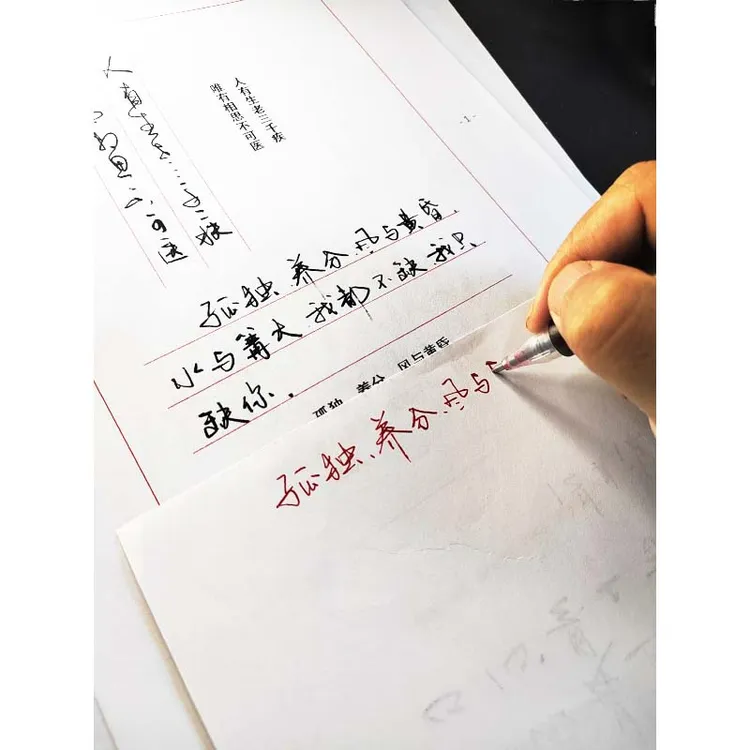 人有生老三千疾
唯有相思不可医
-1-
人有生老三千疾
相思不可医
孤独、养分、风与黄昏、
水与篝火,我都不缺,我只
缺你。
孤独、养分、风与黄昏
孤独、养分、风与